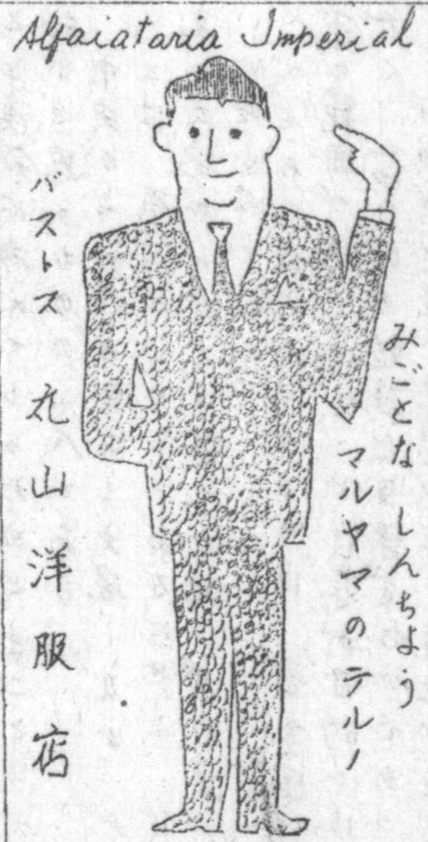 Alfaiataria Imperial
みごとな しんちよう
マルヤマのテルノ
バストス 丸山洋服店